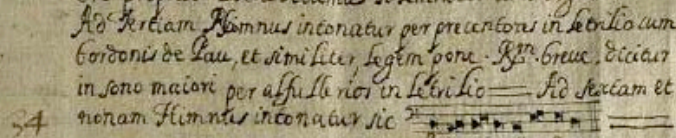 Ad Tertiam Himnus intonatur per precentores in Letrilio cum
bordonis de Pau, et similiter, Legem pone. Rm. breue, dicitur
in sono maiori per alsulberios in Letrilio Ad sextam et
34 nonam Himnus intonatur sic